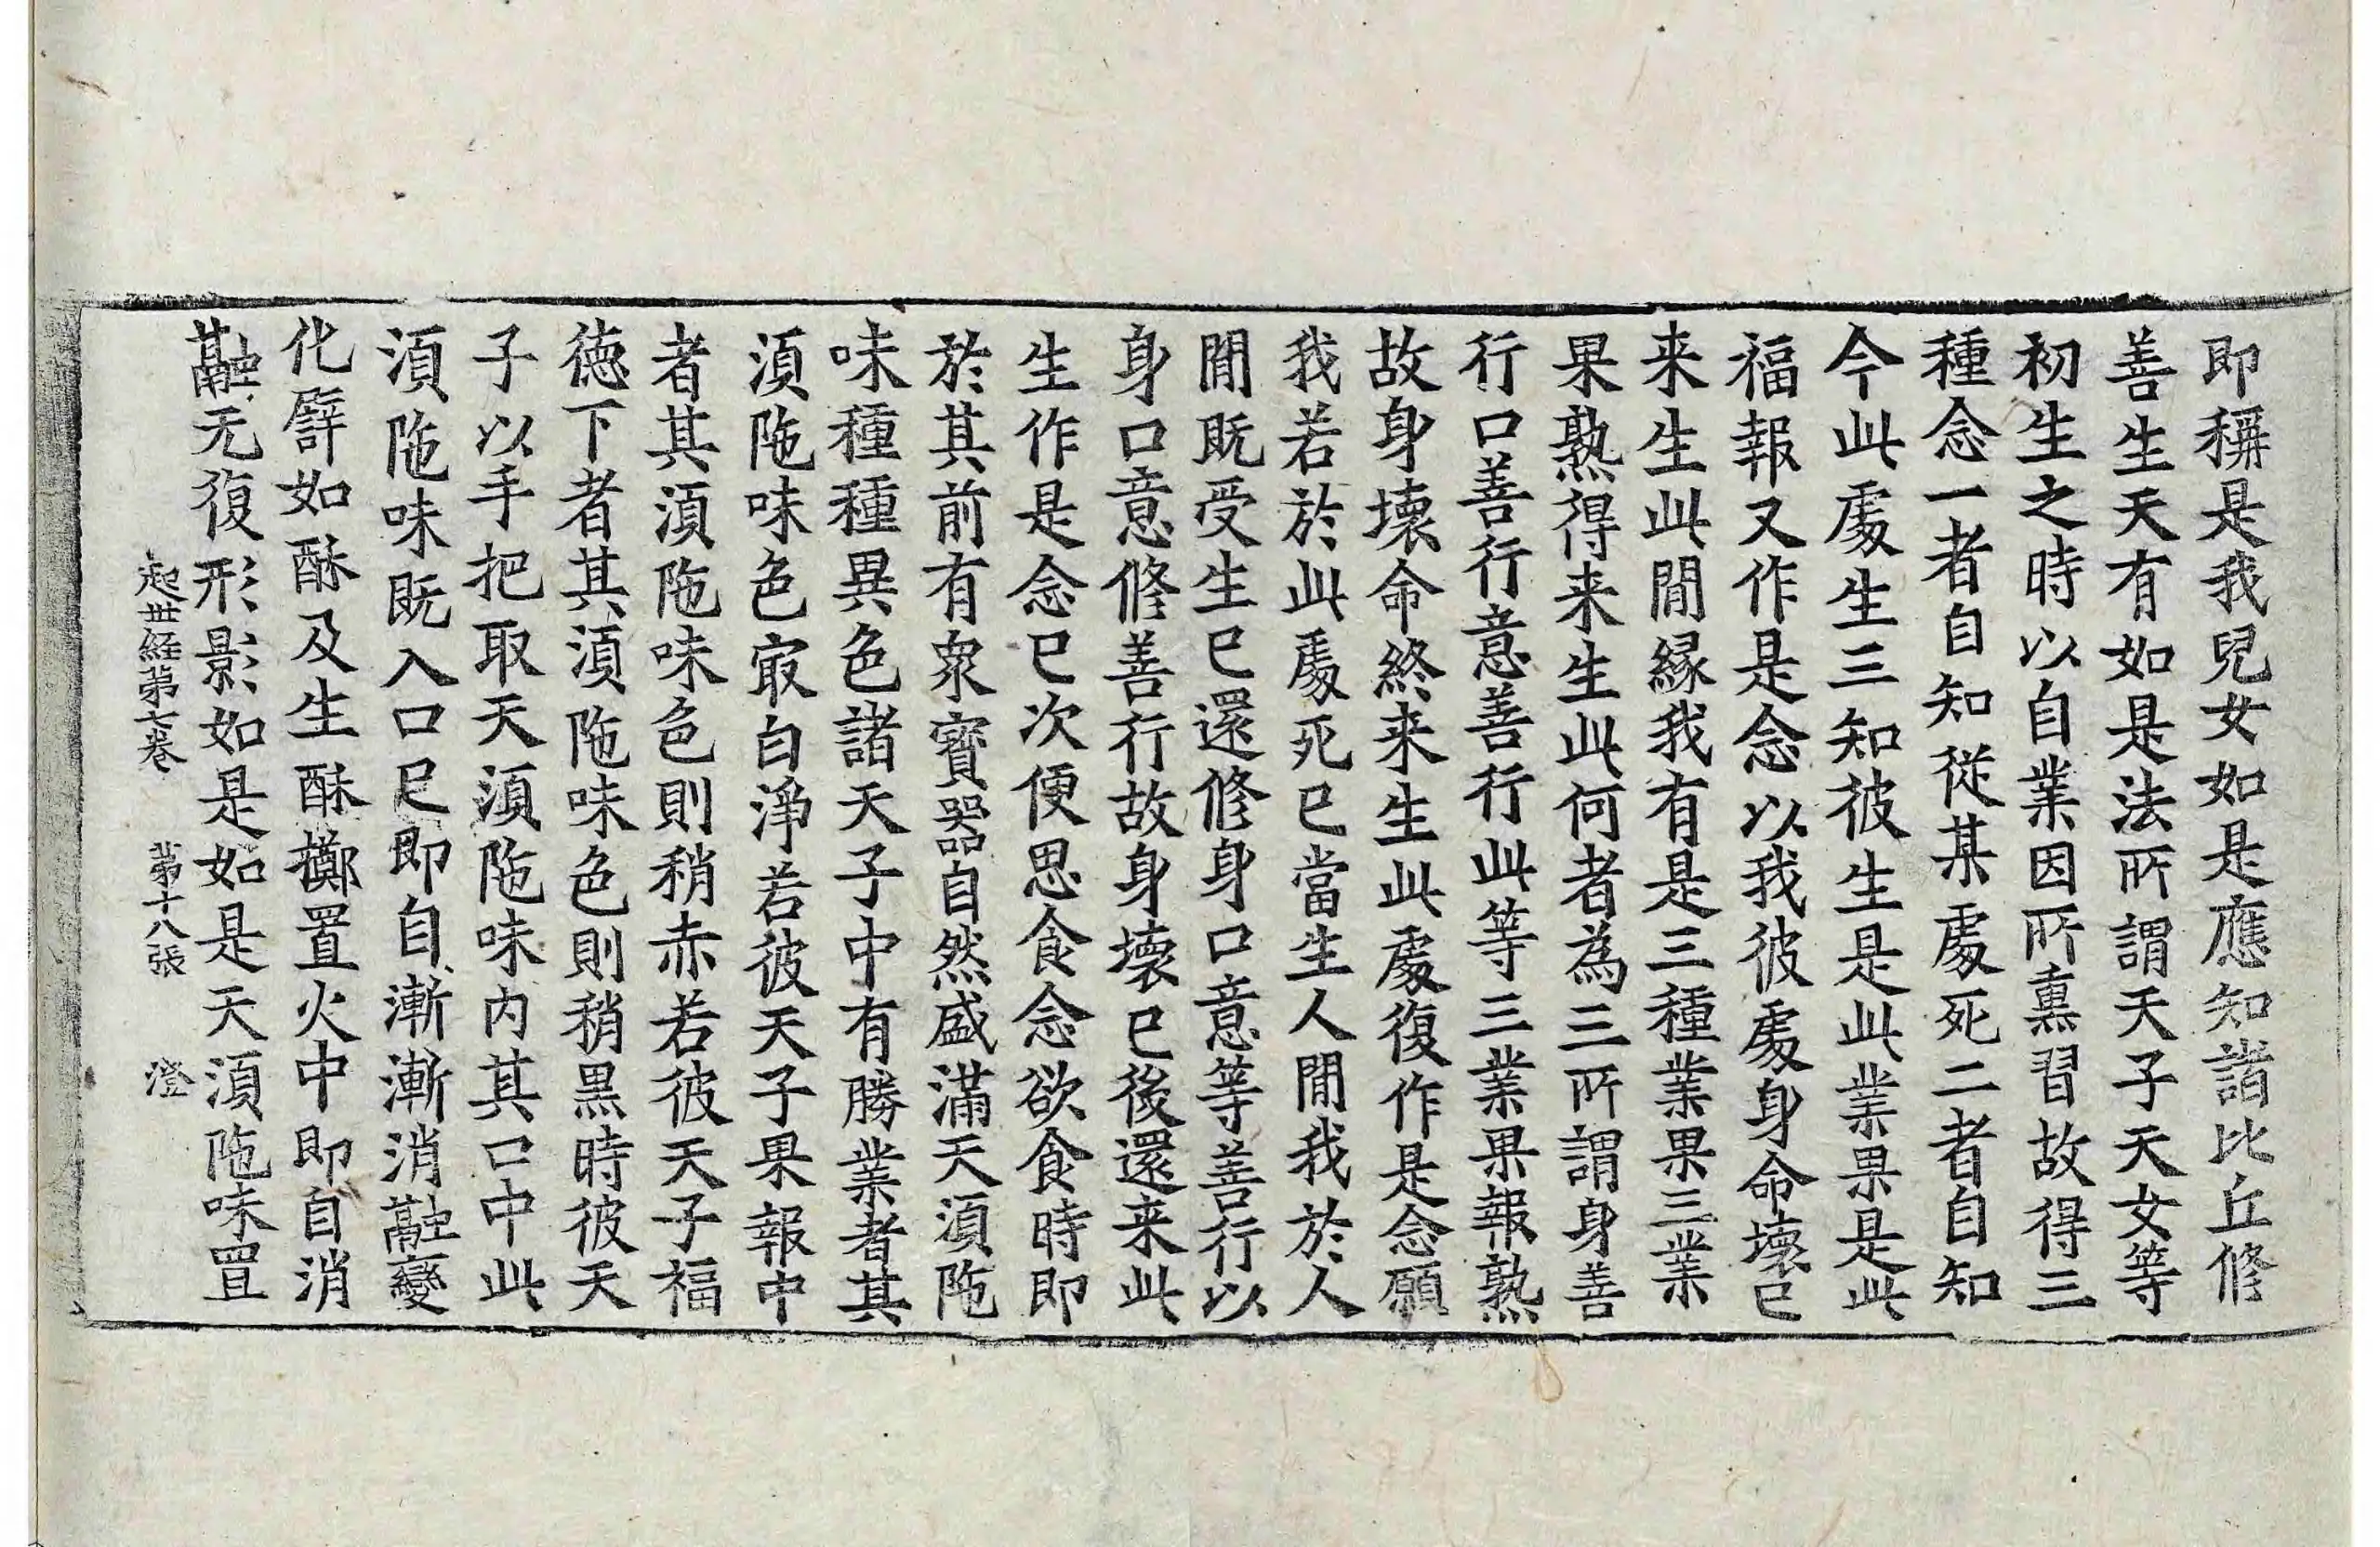 即稱是我兒女如是應知諸比丘修
善生天有如是法所謂天子天女等
初生之時以自業因所熏習故得三
種念一者自知從某處死二者自知
今此處生三知彼生是此業果是此
福報又作是念以我彼處身命壞已
来生此間緣我有是三種業果三業
果熟得来生此何者為三所謂身善
行口善行意善行此等三業果報熟
故身壞命終来生此處復作是念願
我若於此處死已當生人間我於人
間既受生已還修身口意等善行以
身口意修善行故身壞已後還来此
生作是念已次便思食念欲食時即
於其前有眾寶器自然盛滿天湏陁
味種種異色諸天子中有勝業者其
湏陁味色㝡白淨若彼天子果報中
者其湏陁味色則稍赤若彼天子福
德下者其湏陁味色則稍黑時彼天
子以手把取天湏陁味内其口中此
湏陁味既入口已即自漸漸消融變
化譬如酥及生酥擲置火中即自消
融无復形影如是如是天湏陁味置
起世經第七卷 第十八張 澄